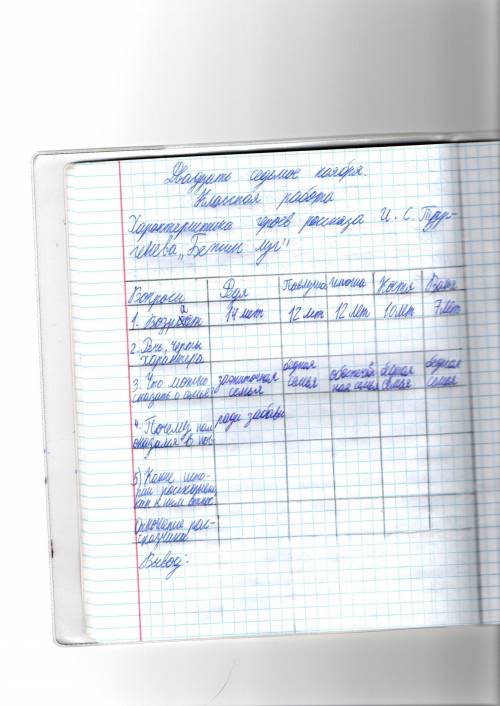 Двадцать седьмое ноября.
Классная работа
Характеристика героев рассказа И. С. Тург-
енева „Бежин луг"
Вопросы Федя Павлуша Илюша Костя Ваня
1. Возраст 14 лет 12 лет 12 лет 10 лет 7 лет
2. Речь, черты
характера
3. Что можно зажиточная бедная обеспечен бедная бедная
сказать о семье? семья семья ная семья семья семья
4. Почему ради забавы
оказался в
5) Какие исто-
рии
Отношение рас-
сказчика
Вывод: